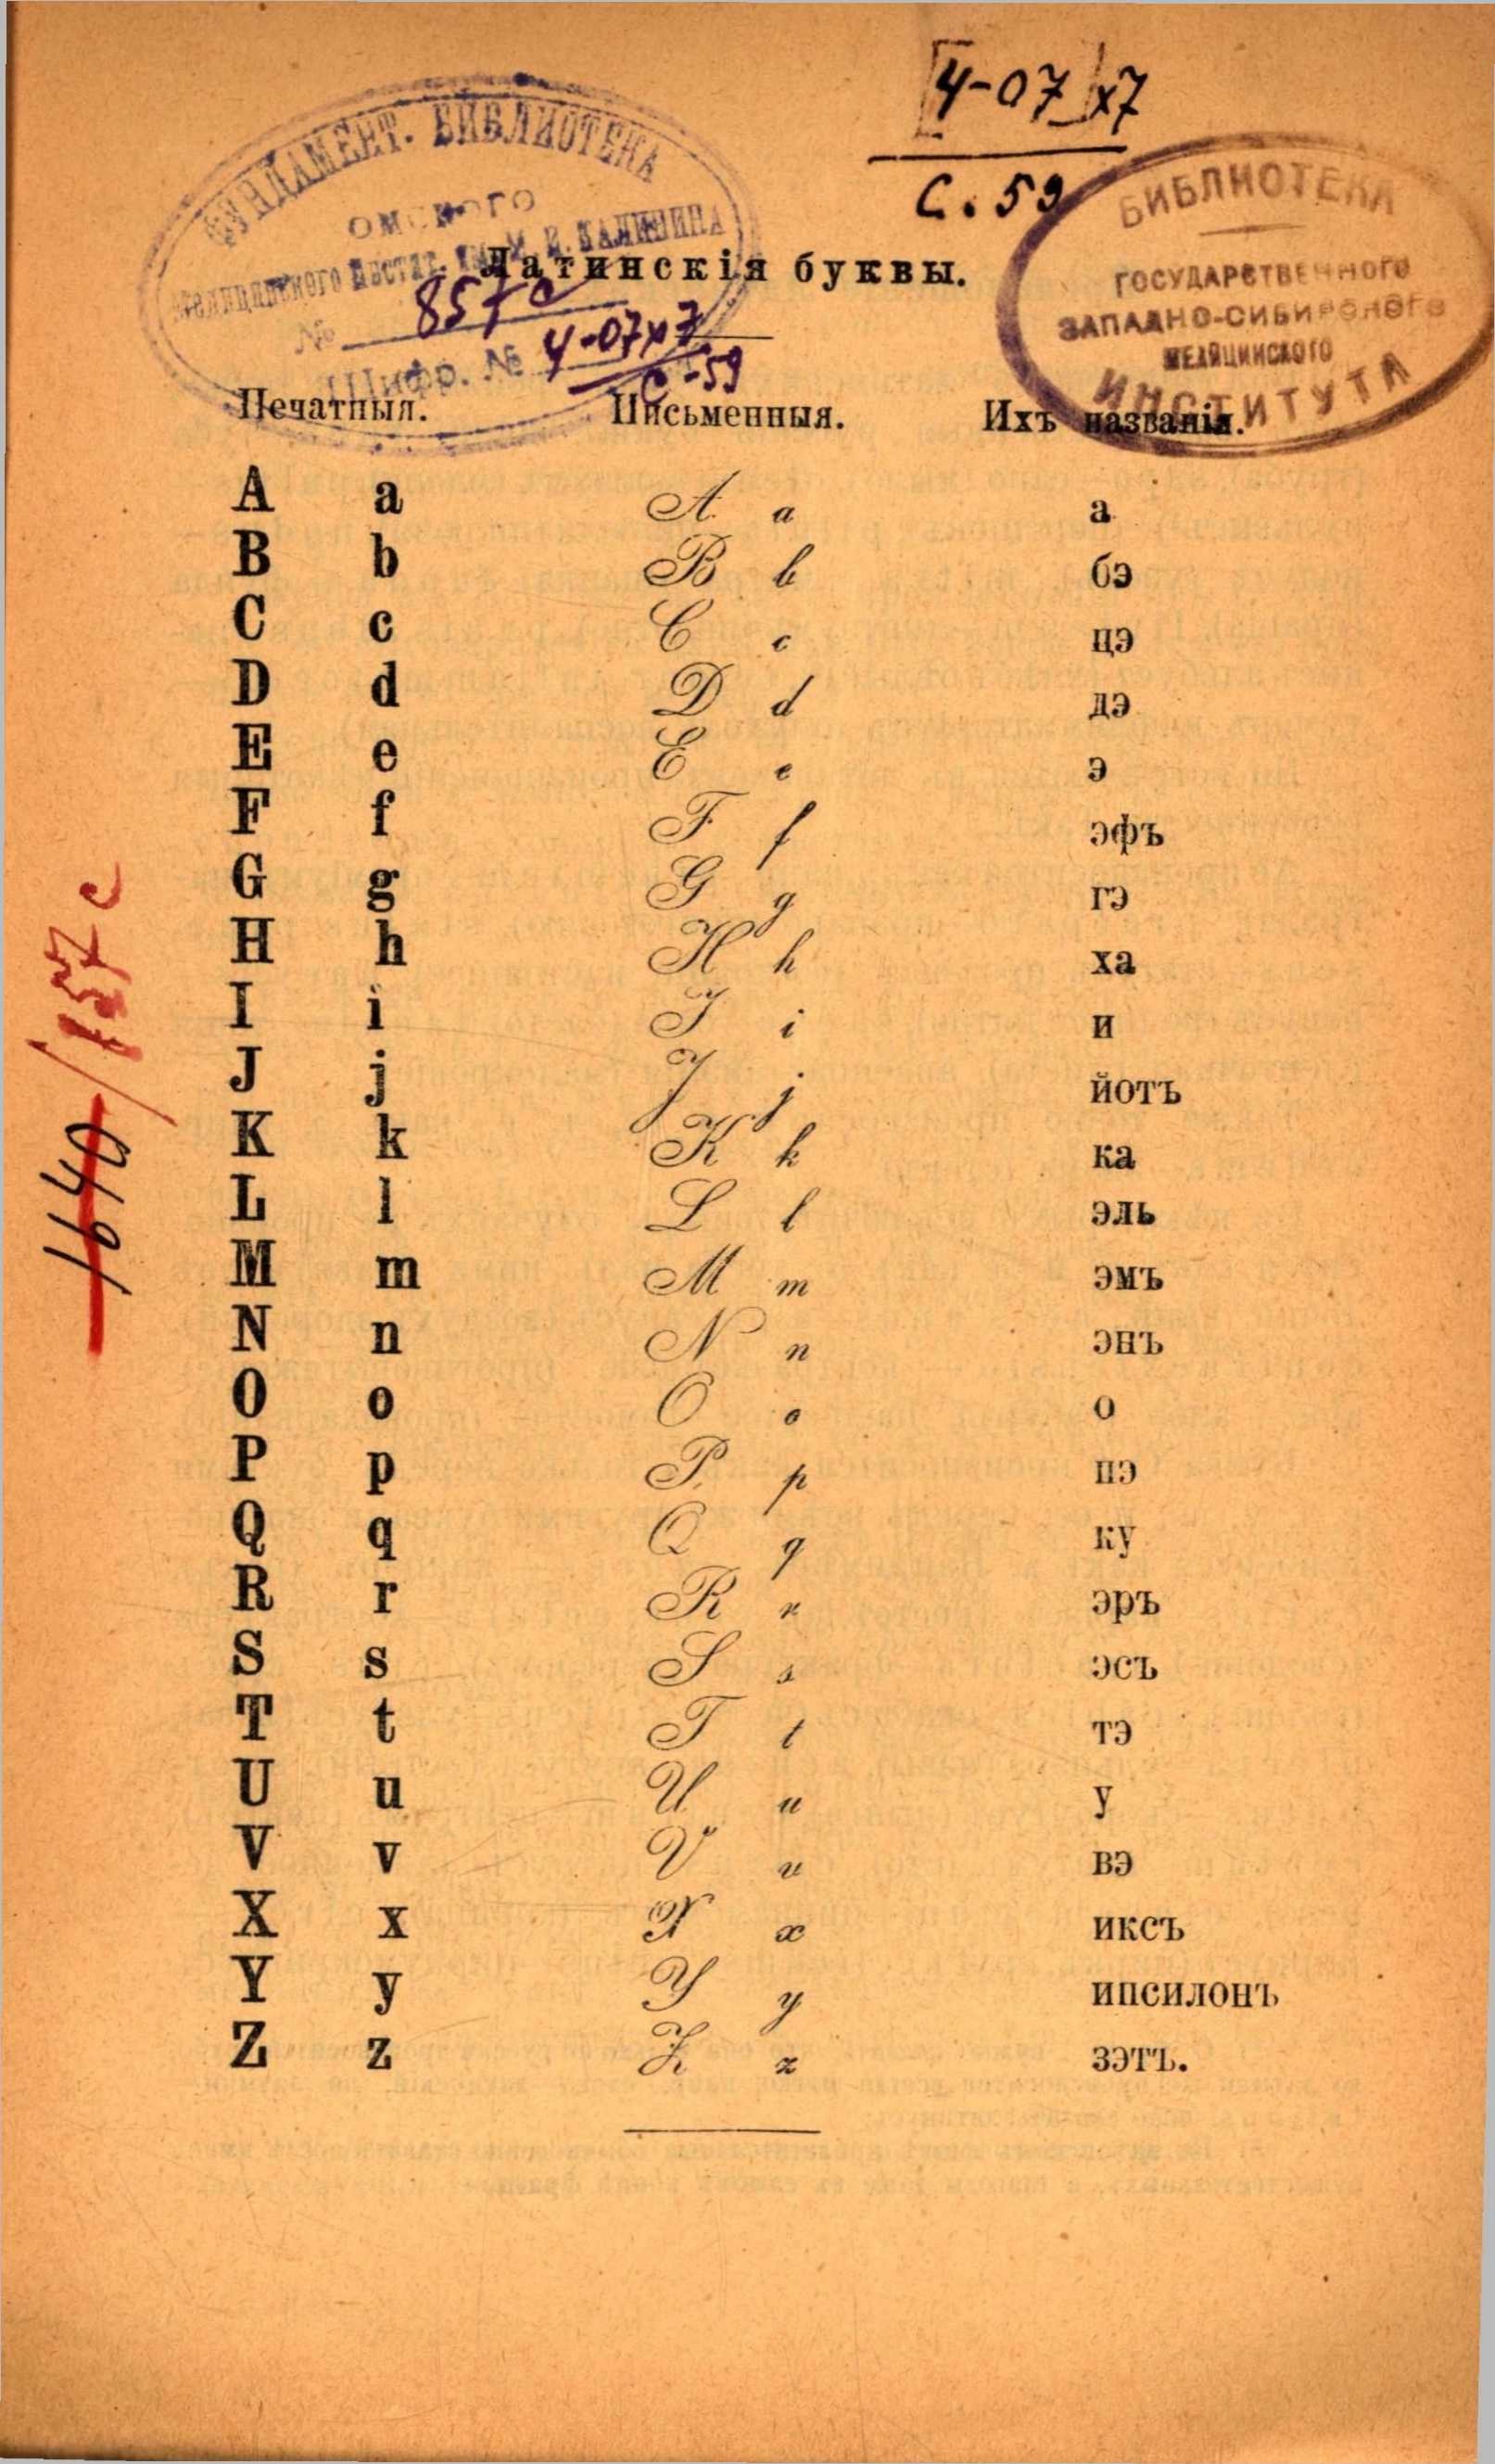 [4-07]x7
С. 59
ФУНДАМЕНТ. БИБЛИОТЕКА
ОМСКОГО
МЕДИЦИНСКОГО ИНСТИТ. ИМ. М. И. КАЛИНИНА
№ 857c
Шифр. № 4-07x7
С-59
БИБЛИОТЕКА
ГОСУДАРСТВЕННОГО
ЗАПАДНО-СИБИРСКОГО
МЕДИЦИНСКОГО
ИНСТИТУТА
Латинскія буквы.
Печатныя. Письменныя. Ихъ названія.
A a A a а
B b B b бэ
C c C c цэ
D d D d дэ
E e E e э
F f F f эфъ
G g G g гэ
H h H h ха
I i I i и
J j J j йотъ
K k K k ка
L l L l эль
M m M m эмъ
N n N n энъ
O o O o о
P p P p пэ
Q q Q q ку
R r R r эръ
S s S s эсъ
T t T t тэ
U u U u у
V v V v вэ
X x X x иксъ
Y y Y y ипсилонъ
Z z Z z зэтъ.
1640/157 c